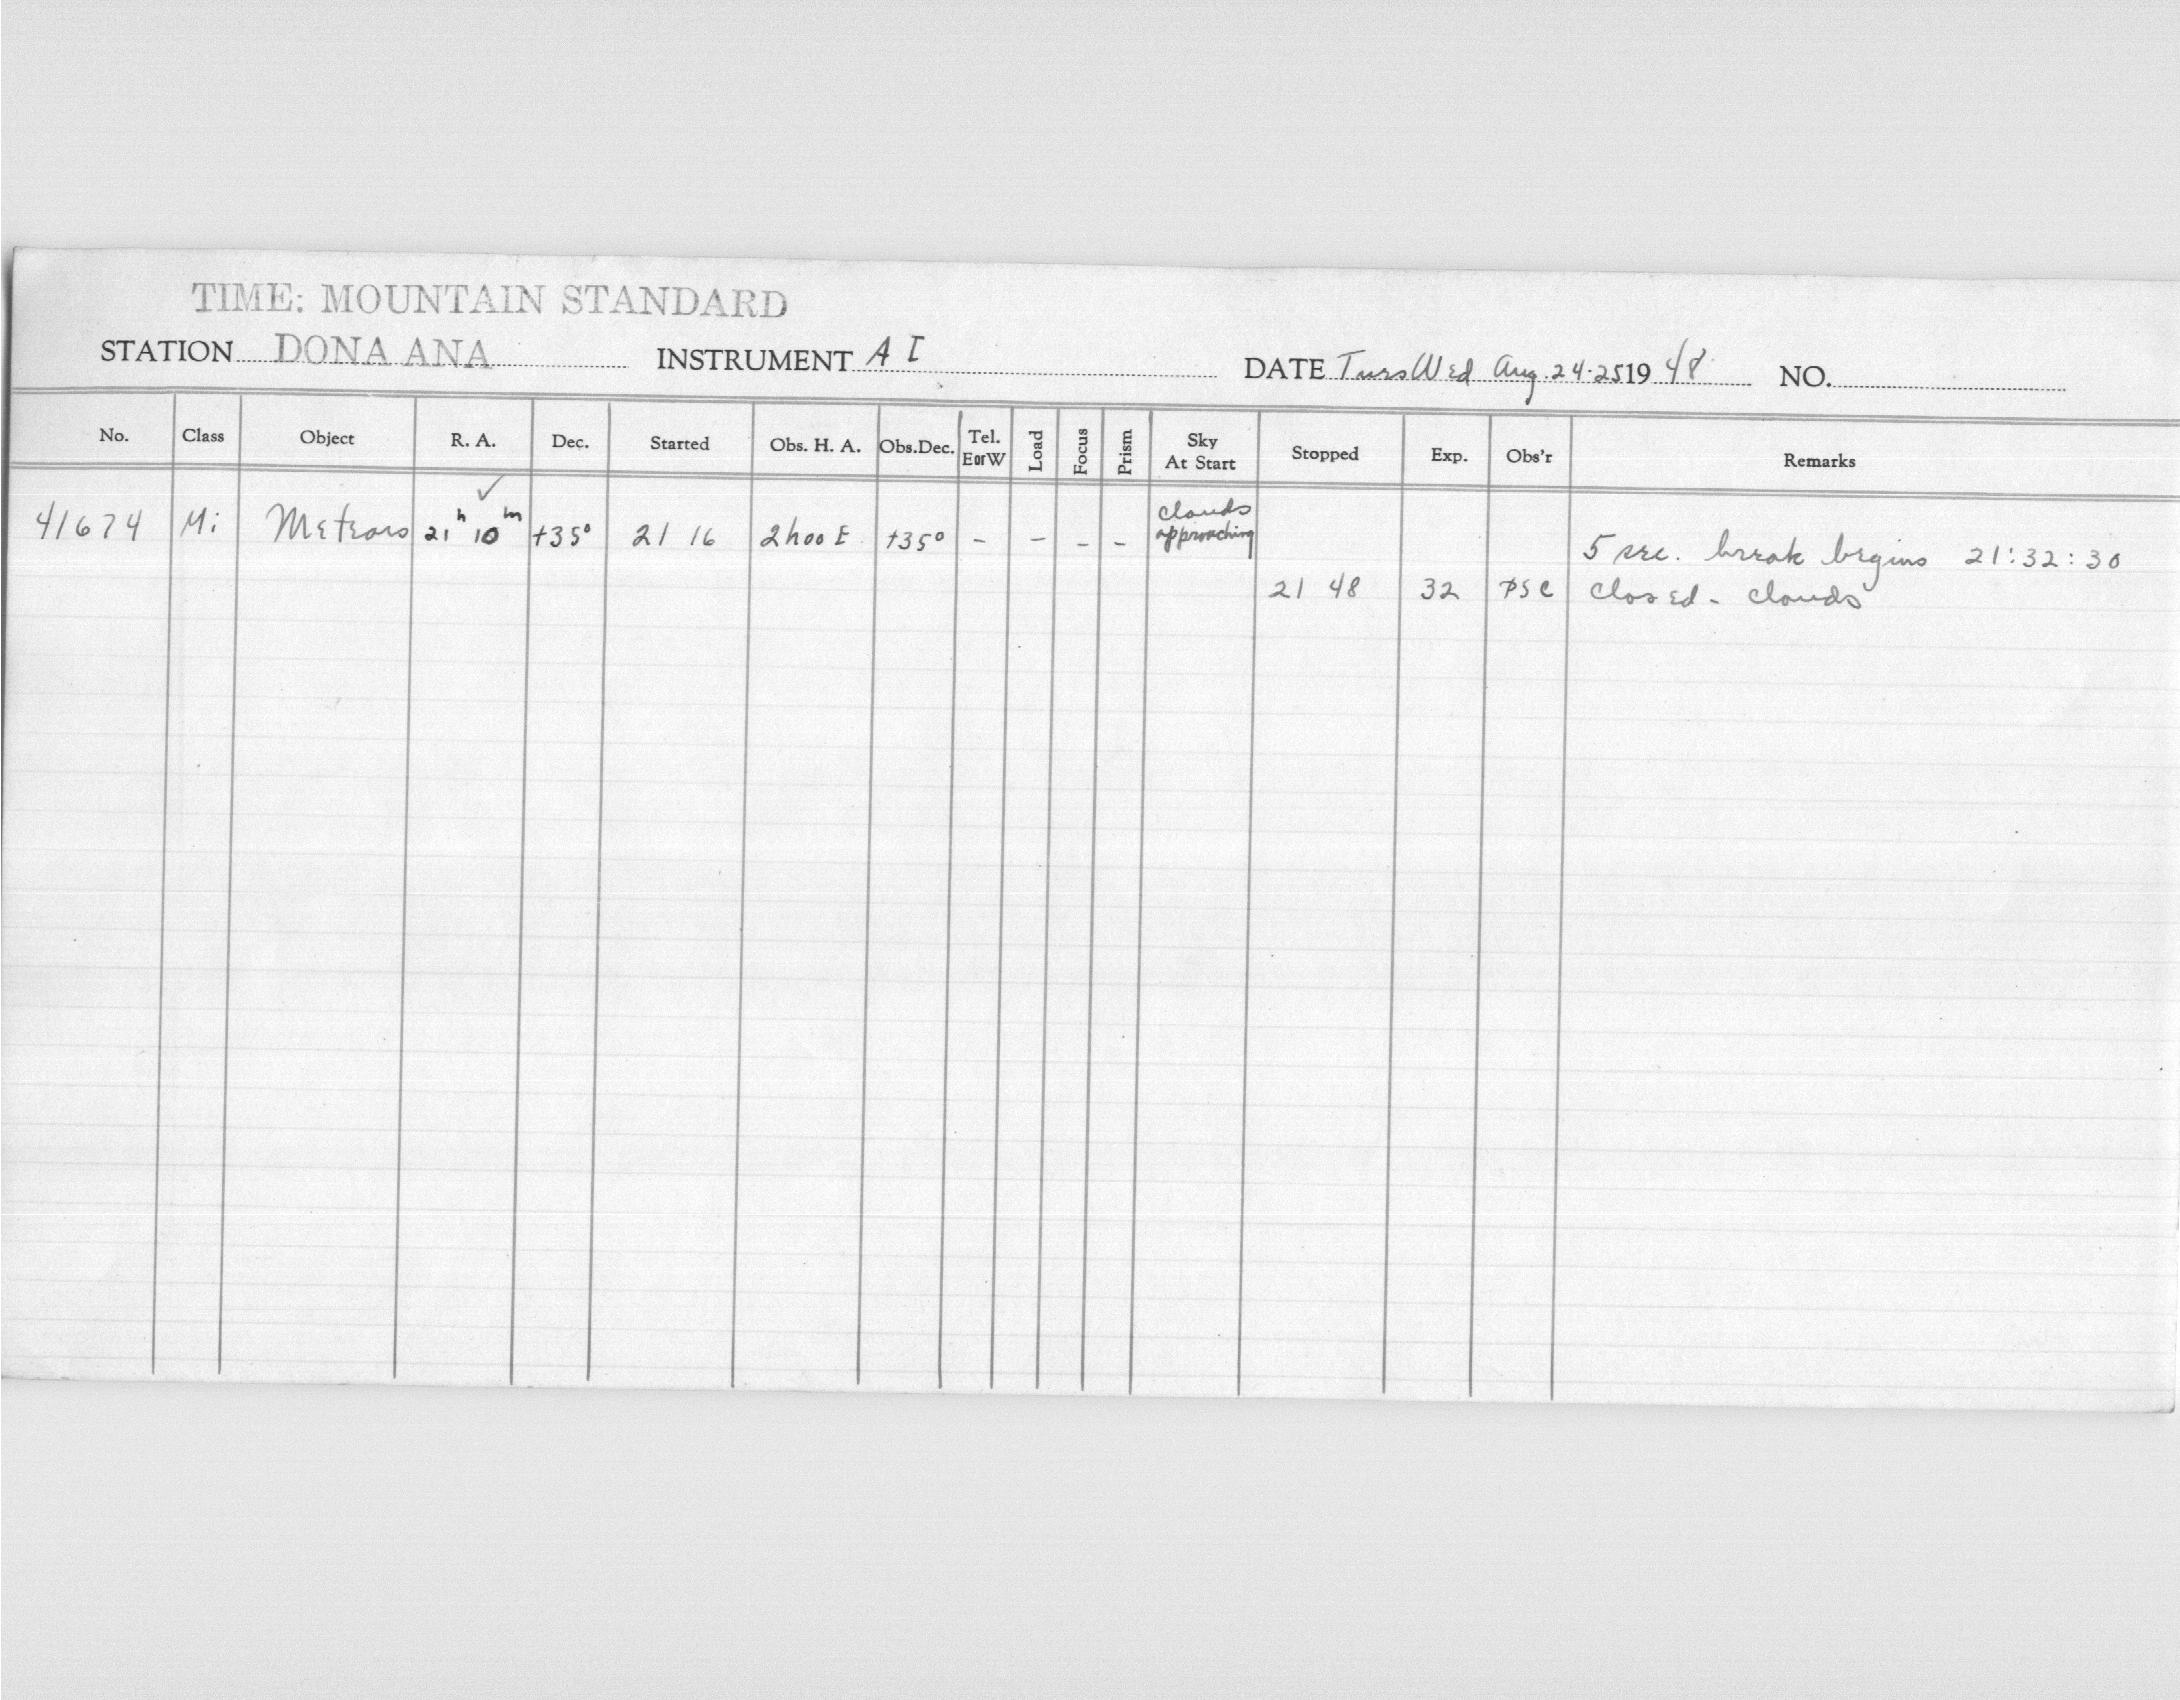 TIME: MOUNTAIN STANDARD
STATION DONA ANA INSTRUMENT A I DATE Tues Wed Aug. 24-25 1948 NO.
No. Class Object R. A. Dec. Started Obs. H. A. Obs.Dec. Tel. EorW Load Focus Prism Sky At Start Stopped Exp. Obs'r Remarks
41674 Mi Meteors 21h 10m ✓ +35° 21 16 2h00 E +35° - - - - clouds approaching 5 sec. break begins 21:32:30
21 48 32 PSC closed - clouds